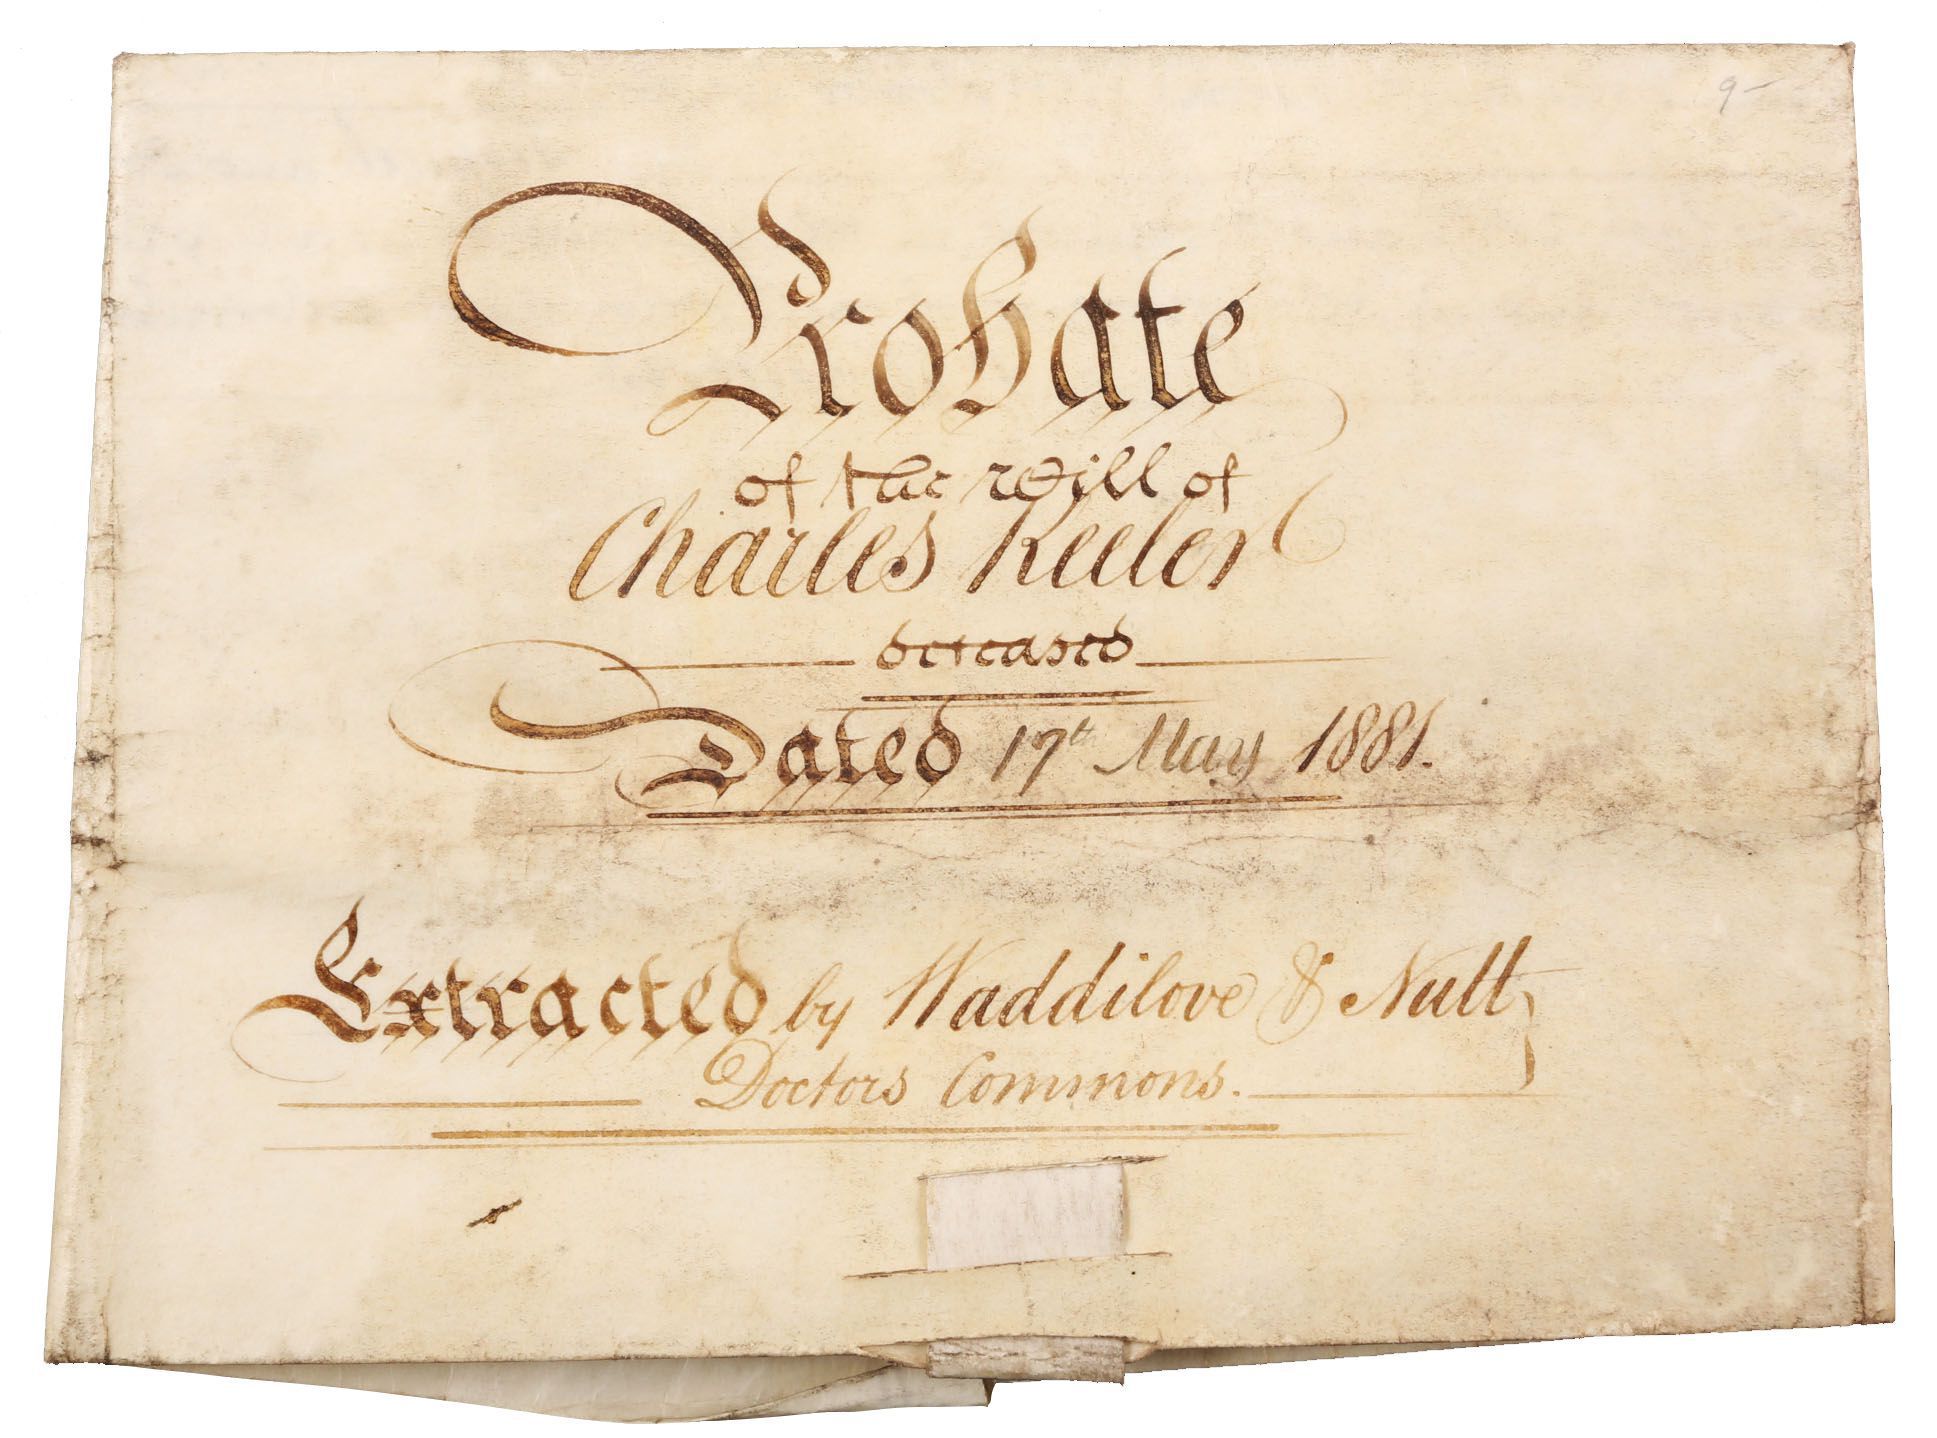 9-
Probate
of the Will of
Charles Keeler
deceased
Dated 17th May 1881.
Extracted by Waddilove & Nutt
Doctors Commons.